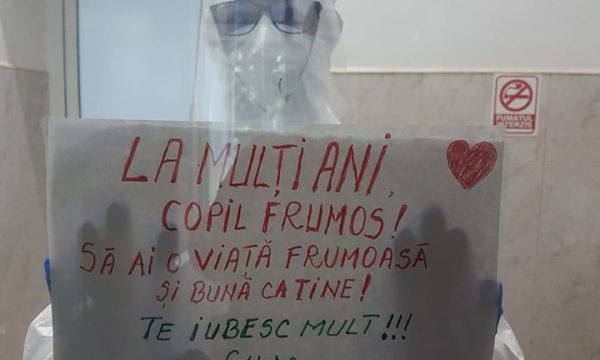 LA MULȚI ANI,
COPIL FRUMOS!
SĂ AI O VIAȚĂ FRUMOASĂ
ȘI BUNĂ CA TINE!
TE IUBESC MULT!!!
FUMATUL
INTERZIS